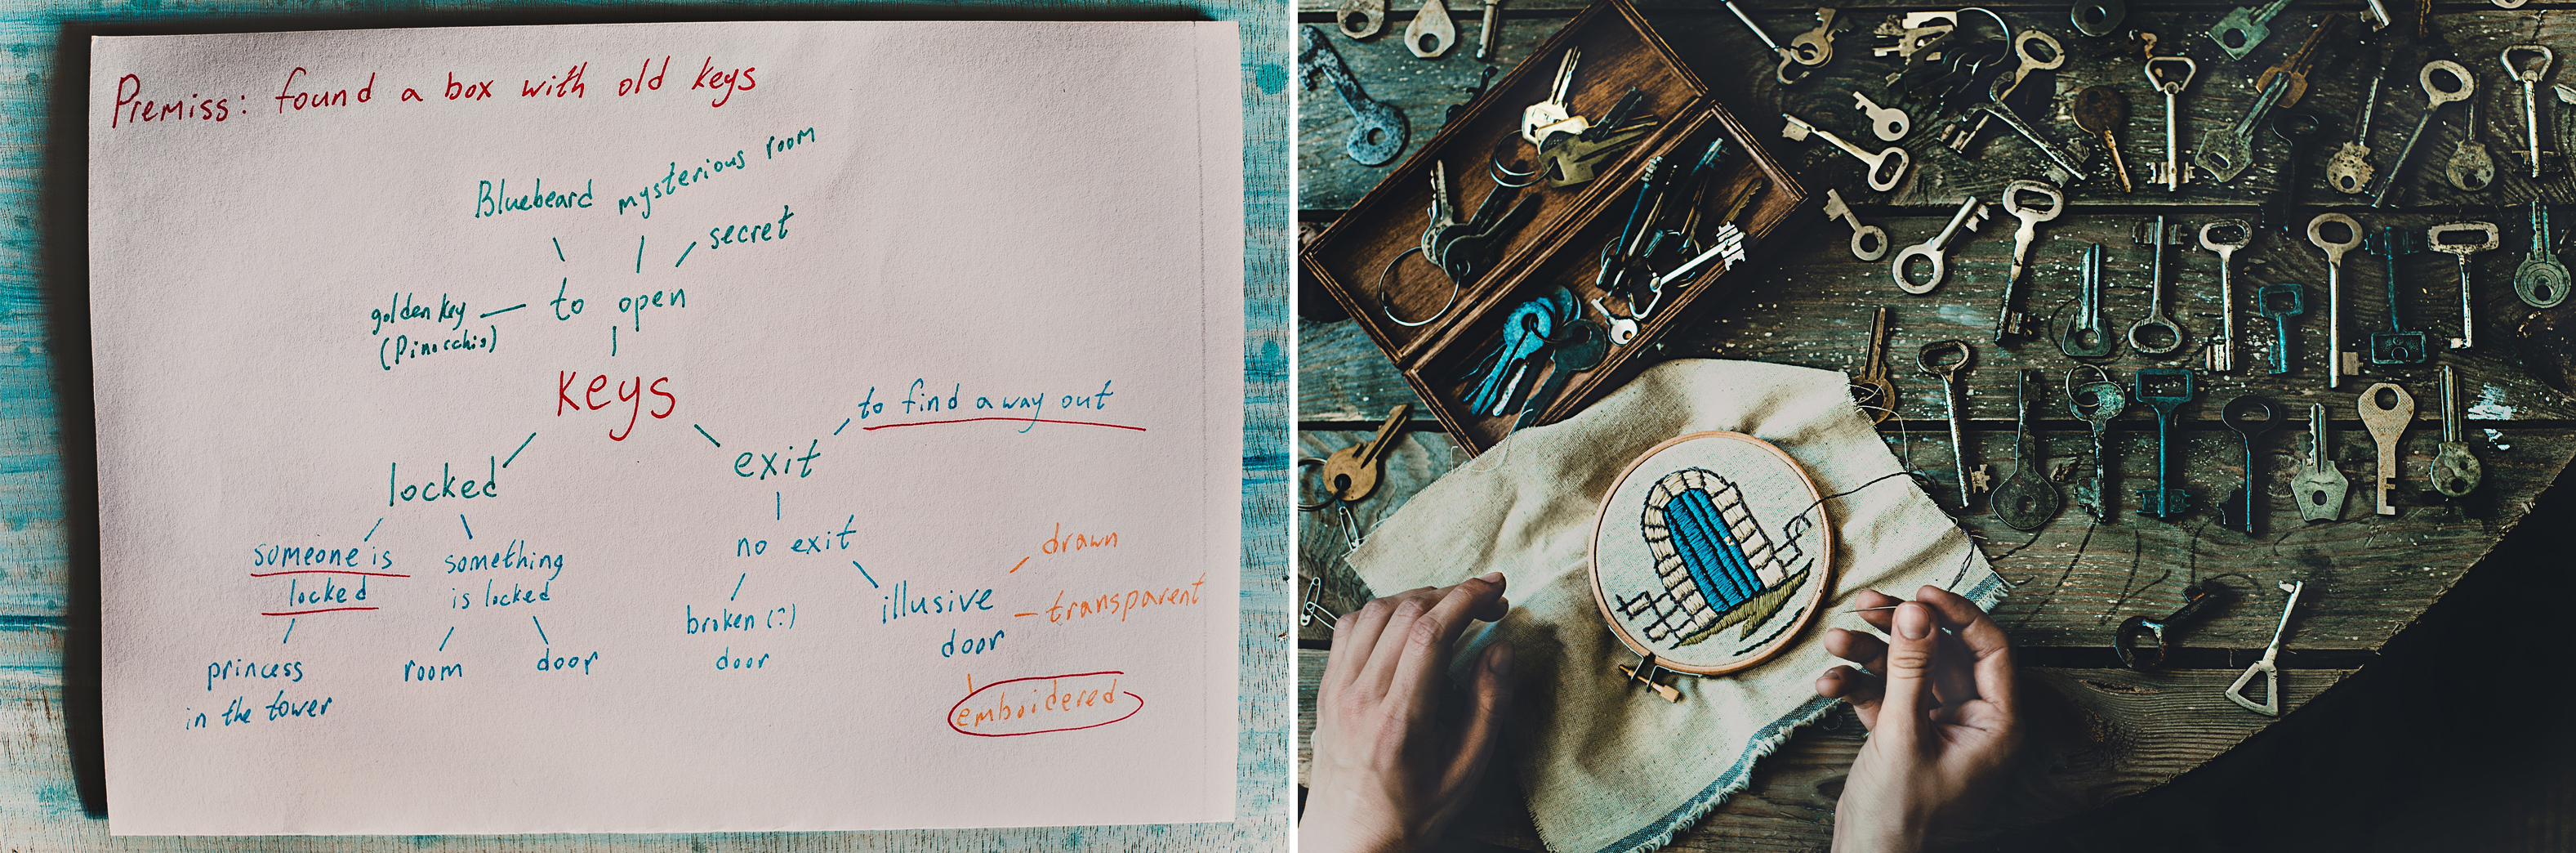 Premiss: found a box with old keys
Bluebeard
mysterious room
secret
golden key
(Pinocchio)
to open
keys
to find a way out
locked
exit
someone is
locked
something
is locked
no exit
drawn
illusive
door
transparent
broken (?)
door
princess
in the tower
room
door
emboidered